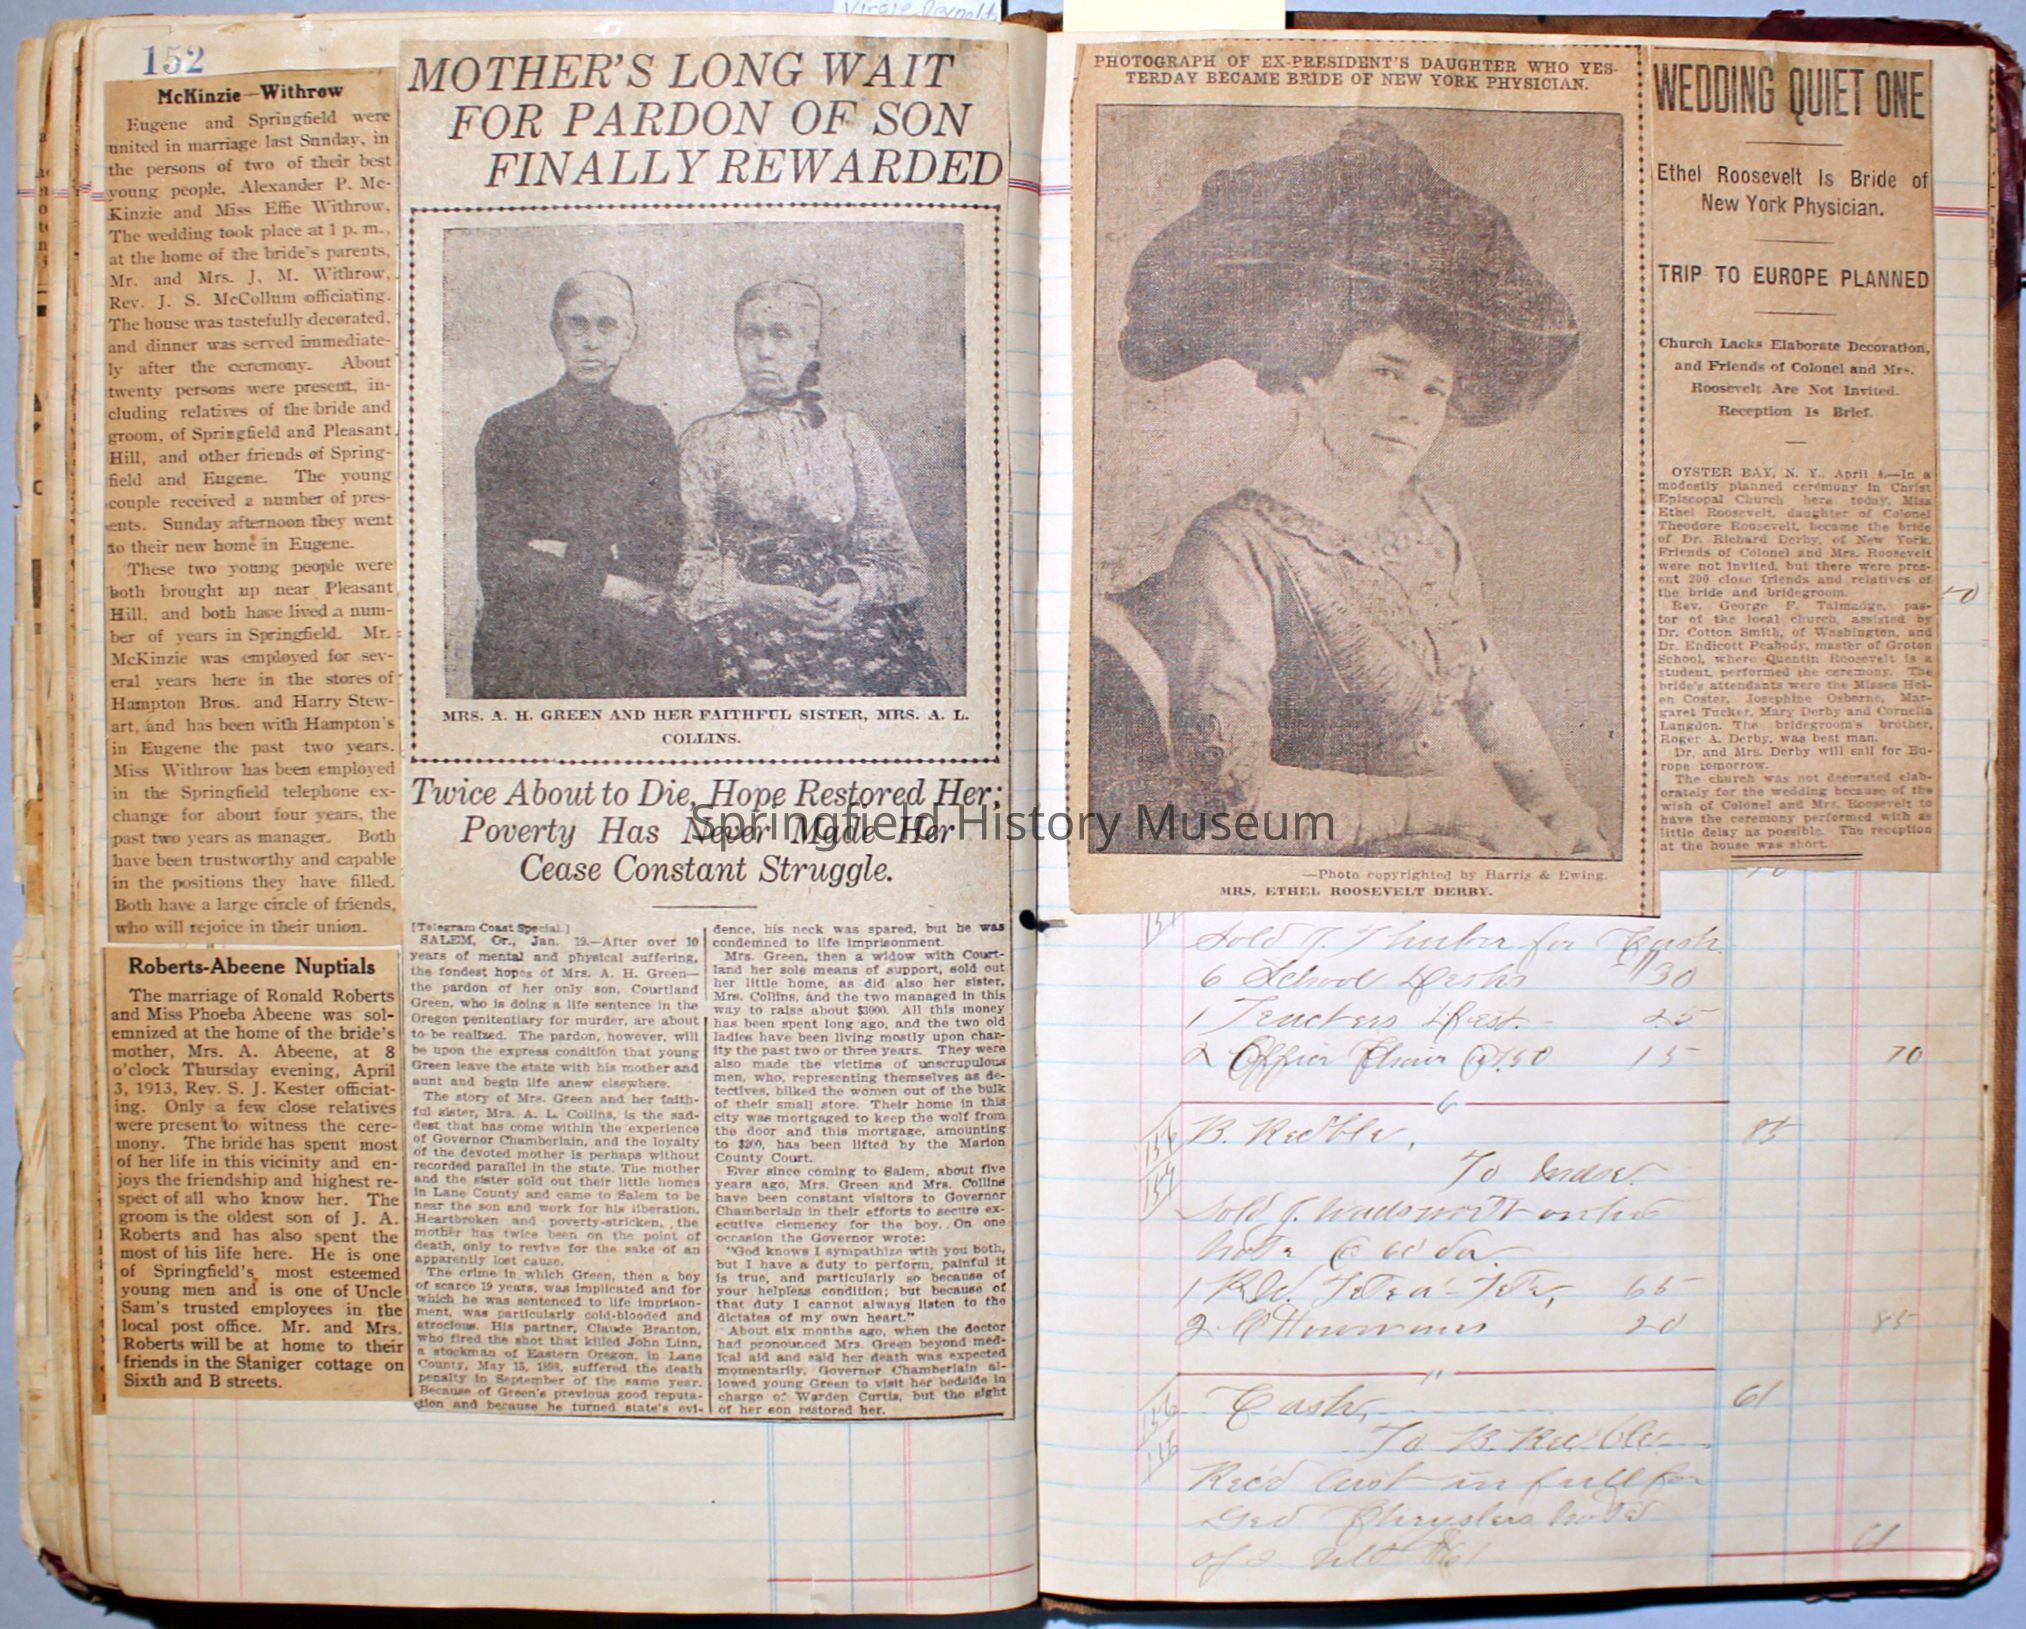 Virgie Reynolds
152
McKinzie—Withrow
Eugene and Springfield were
united in marriage last Sunday, in
the persons of two of their best
young people, Alexander P. Mc-
Kinzie and Miss Effie Withrow.
The wedding took place at 1 p. m.,
at the home of the bride's parents,
Mr. and Mrs. J. M. Withrow,
Rev. J. S. McCollum officiating.
The house was tastefully decorated,
and dinner was served immediate-
ly after the ceremony. About
twenty persons were present, in-
cluding relatives of the bride and
groom, of Springfield and Pleasant
Hill, and other friends of Spring-
field and Eugene. The young
couple received a number of pres-
ents. Sunday afternoon they went
to their new home in Eugene.
These two young people were
both brought up near Pleasant
Hill, and both have lived a num-
ber of years in Springfield. Mr.
McKinzie was employed for sev-
eral years here in the stores of
Hampton Bros. and Harry Stew-
art, and has been with Hampton's
in Eugene the past two years.
Miss Withrow has been employed
in the Springfield telephone ex-
change for about four years, the
past two years as manager. Both
have been trustworthy and capable
in the positions they have filled.
Both have a large circle of friends,
who will rejoice in their union.
Roberts-Abeene Nuptials
The marriage of Ronald Roberts
and Miss Phoeba Abeene was sol-
emnized at the home of the bride's
mother, Mrs. A. Abeene, at 8
o'clock Thursday evening, April
3, 1913, Rev. S. J. Kester officiat-
ing. Only a few close relatives
were present to witness the cere-
mony. The bride has spent most
of her life in this vicinity and en-
joys the friendship and highest re-
spect of all who know her. The
groom is the oldest son of J. A.
Roberts and has also spent the
most of his life here. He is one
of Springfield's most esteemed
young men and is one of Uncle
Sam's trusted employees in the
local post office. Mr. and Mrs.
Roberts will be at home to their
friends in the Staniger cottage on
Sixth and B streets.
MOTHER'S LONG WAIT
FOR PARDON OF SON
FINALLY REWARDED
MRS. A. H. GREEN AND HER FAITHFUL SISTER, MRS. A. L.
COLLINS.
Twice About to Die, Hope Restored Her;
Poverty Has Never Made Her
Cease Constant Struggle.
[Telegram Coast Special.]
SALEM, Or., Jan. 19.—After over 10
years of mental and physical suffering,
the fondest hopes of Mrs. A. H. Green—
the pardon of her only son, Courtland
Green, who is doing a life sentence in the
Oregon penitentiary for murder, are about
to be realized. The pardon, however, will
be upon the express condition that young
Green leave the state with his mother and
aunt and begin life anew elsewhere.
The story of Mrs. Green and her faith-
ful sister, Mrs. A. L. Collins, is the sad-
dest that has come within the experience
of Governor Chamberlain, and the loyalty
of the devoted mother is perhaps without
recorded parallel in the state. The mother
and the sister sold out their little homes
in Lane County and came to Salem to be
near the son and work for his liberation.
Heartbroken and poverty-stricken, the
mother has twice been on the point of
death, only to revive for the sake of an
apparently lost cause.
The crime in which Green, then a boy
of scarce 19 years, was implicated and for
which he was sentenced to life imprison-
ment, was particularly cold-blooded and
atrocious. His partner, Claude Branton,
who fired the shot that killed John Linn,
a stockman of Eastern Oregon, in Lane
County, May 15, 1898, suffered the death
penalty in September of the same year.
Because of Green's previous good reputa-
tion and because he turned state's evi-
dence, his neck was spared, but he was
condemned to life imprisonment.
Mrs. Green, then a widow with Court-
land her sole means of support, sold out
her little home, as did also her sister,
Mrs. Collins, and the two managed in this
way to raise about $3000. All this money
has been spent long ago, and the two old
ladies have been living mostly upon char-
ity the past two or three years. They were
also made the victims of unscrupulous
men, who, representing themselves as de-
tectives, bilked the women out of the bulk
of their small store. Their home in this
city was mortgaged to keep the wolf from
the door and this mortgage, amounting
to $300, has been lifted by the Marion
County Court.
Ever since coming to Salem, about five
years ago, Mrs. Green and Mrs. Collins
have been constant visitors to Governor
Chamberlain in their efforts to secure ex-
ecutive clemency for the boy. On one
occasion the Governor wrote:
"God knows I sympathize with you both,
but I have a duty to perform, painful it
is true, and particularly so because of
your helpless condition; but because of
that duty I cannot always listen to the
dictates of my own heart."
About six months ago, when the doctor
had pronounced Mrs. Green beyond med-
ical aid and said her death was expected
momentarily, Governor Chamberlain al-
lowed young Green to visit her bedside in
charge of Warden Curtis, but the sight
of her son restored her.
PHOTOGRAPH OF EX-PRESIDENT'S DAUGHTER WHO YES-
TERDAY BECAME BRIDE OF NEW YORK PHYSICIAN.
—Photo copyrighted by Harris & Ewing.
MRS. ETHEL ROOSEVELT DERBY.
WEDDING QUIET ONE
Ethel Roosevelt Is Bride of
New York Physician.
TRIP TO EUROPE PLANNED
Church Lacks Elaborate Decoration,
and Friends of Colonel and Mrs.
Roosevelt Are Not Invited.
Reception Is Brief.
OYSTER BAY, N. Y., April 4.—In a
modestly planned ceremony in Christ
Episcopal Church here today, Miss
Ethel Roosevelt, daughter of Colonel
Theodore Roosevelt, became the bride
of Dr. Richard Derby, of New York.
Friends of Colonel and Mrs. Roosevelt
were not invited, but there were pres-
ent 200 close friends and relatives of
the bride and bridegroom.
Rev. George F. Talmadge, pas-
tor of the local church, assisted by
Dr. Cotton Smith, of Washington, and
Dr. Endicott Peabody, master of Groton
School, where Quentin Roosevelt is a
student, performed the ceremony. The
bride's attendants were the Misses Hel-
en Coster, Josephine Osborne, Mar-
garet Tucker, Mary Derby and Cornelia
Langdon. The bridegroom's brother,
Roger A. Derby, was best man.
Dr. and Mrs. Derby will sail for Eu-
rope tomorrow.
The church was not decorated elab-
orately for the wedding because of the
wish of Colonel and Mrs. Roosevelt to
have the ceremony performed with as
little delay as possible. The reception
at the house was short.
Springfield History Museum
Sold J. for Cash
6 School Desks 30
1 Teachers Desk 25
2 Office Chair @ 7.50 15 70
6
To Mdse.
Sold J. Wadsworth on his
note @ 60 da.
1 65
2 20 85
11
Cash, 61
To B.
Rec'd Cash in full for
Geo Chryslers note
of 61